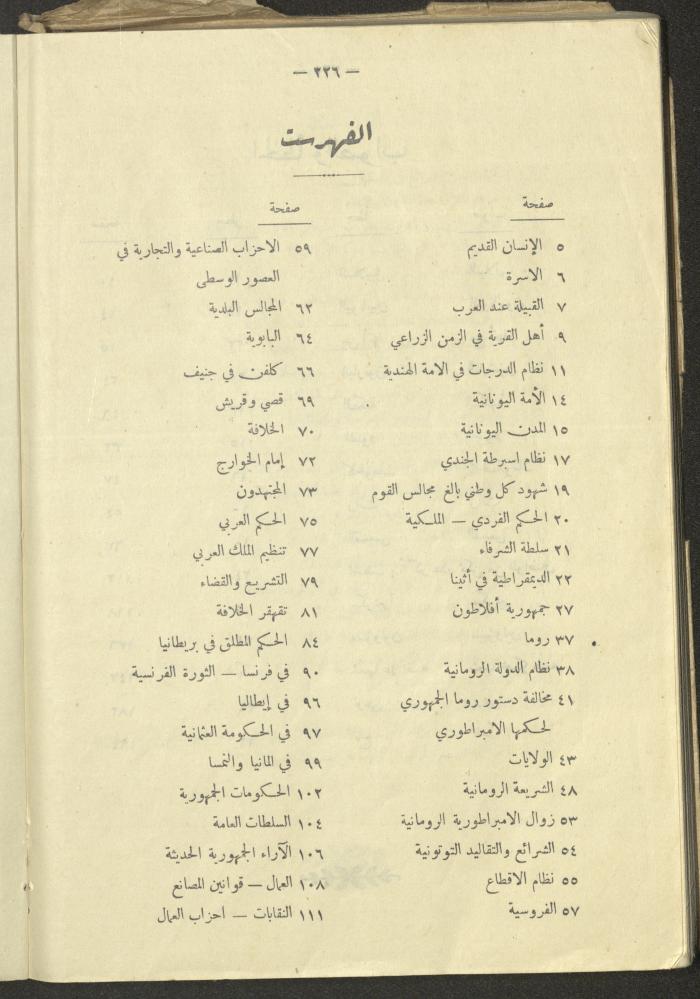 — ٢٢٦ —
الفهرست
صفحة
٥ الإنسان القديم
٦ الاسرة
٧ القبيلة عند العرب
٩ أهل القرية في الزمن الزراعي
١١ نظام الدرجات في الامة الهندية
١٤ الأمة اليونانية
١٥ المدن اليونانية
١٧ نظام اسبرطة الجندي
١٩ شهود كل وطني بالغ مجالس القوم
٢٠ الحكم الفردي — الملكية
٢١ سلطة الشرفاء
٢٢ الديمقراطية في أثينا
٢٧ جمهورية أفلاطون
٣٧ روما
٣٨ نظام الدولة الرومانية
٤١ مخالفة دستور روما الجمهوري
لحكمها الامبراطوري
٤٣ الولايات
٤٨ الشريعة الرومانية
٥٣ زوال الامبراطورية الرومانية
٥٤ الشرائع والتقاليد التوتونية
٥٥ نظام الاقطاع
٥٧ الفروسية
صفحة
٥٩ الاحزاب الصناعية والتجارية في
العصور الوسطى
٦٢ المجالس البلدية
٦٤ البابوية
٦٦ كلفن في جنيف
٦٩ قصي وقريش
٧٠ الخلافة
٧٢ إمام الخوارج
٧٣ المجتهدون
٧٥ الحكم العربي
٧٧ تنظيم الملك العربي
٧٩ التشريع والقضاء
٨١ تقهقر الخلافة
٨٤ الحكم المطلق في بريطانيا
٩٠ في فرنسا — الثورة الفرنسية
٩٦ في إيطاليا
٩٧ في الحكومة العثمانية
٩٩ في المانيا والنمسا
١٠٢ الحكومات الجمهورية
١٠٤ السلطات العامة
١٠٦ الآراء الجمهورية الحديثة
١٠٨ العمال — قوانين المصانع
١١١ النقابات — احزاب العمال